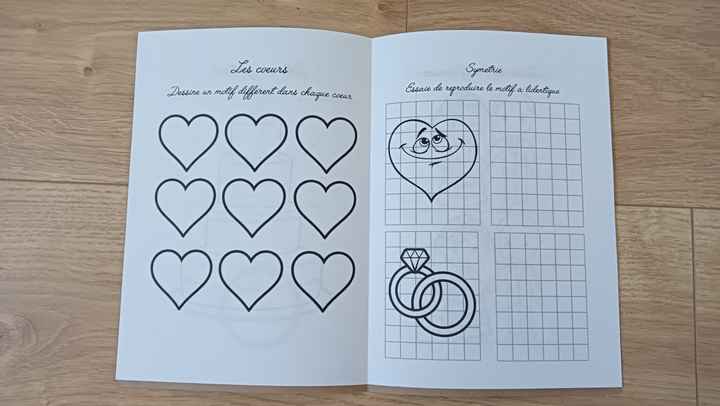 Les coeurs
Dessine un motif différent dans chaque coeur
Symetrie
Essaie de reproduire le motif à lidentique